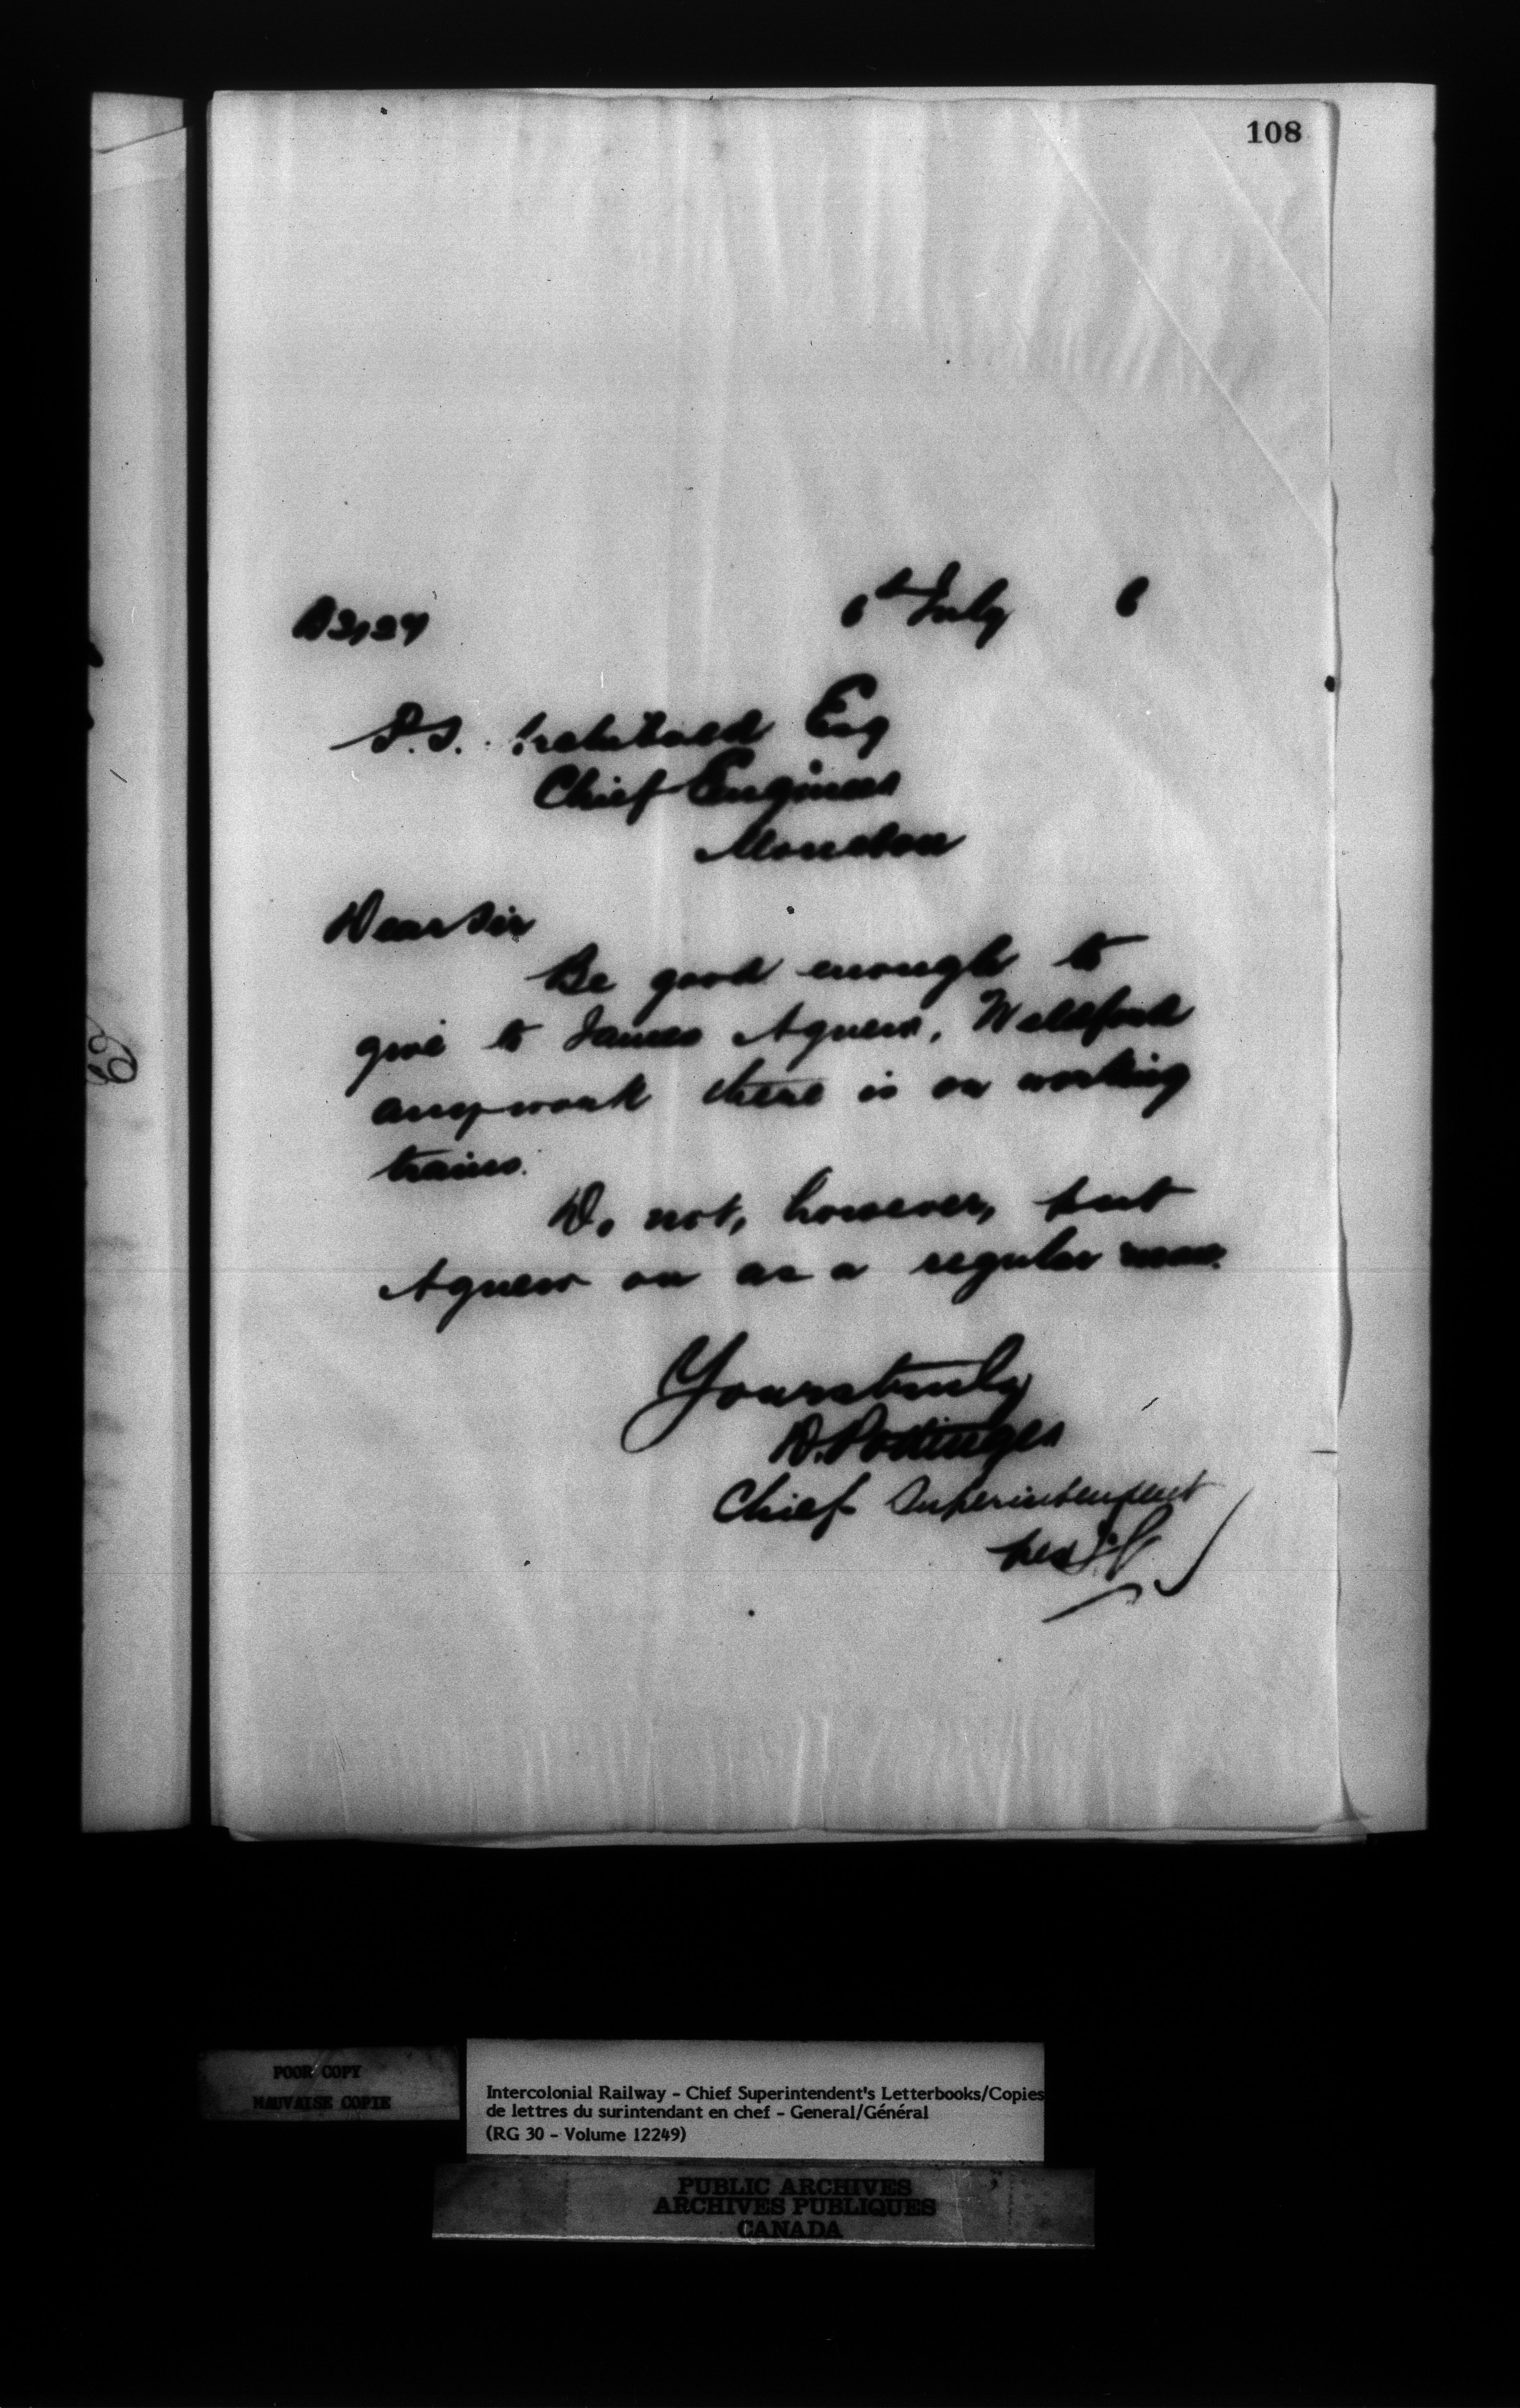 108
6th July 6
P.S. Archibald Esq
Chief Engineer
Moncton
Dear Sir
Be good enough to
give to James Agnew, Weldford
any work there is on working
trains.
Do not, however, put
Agnew on as a regular man.
Yours truly
D. Pottinger
Chief Superintendent
per
POOR COPY
MAUVAISE COPIE
Intercolonial Railway - Chief Superintendent's Letterbooks/Copies
de lettres du surintendant en chef - General/Général
(RG 30 - Volume 12249)
PUBLIC ARCHIVES
ARCHIVES PUBLIQUES
CANADA